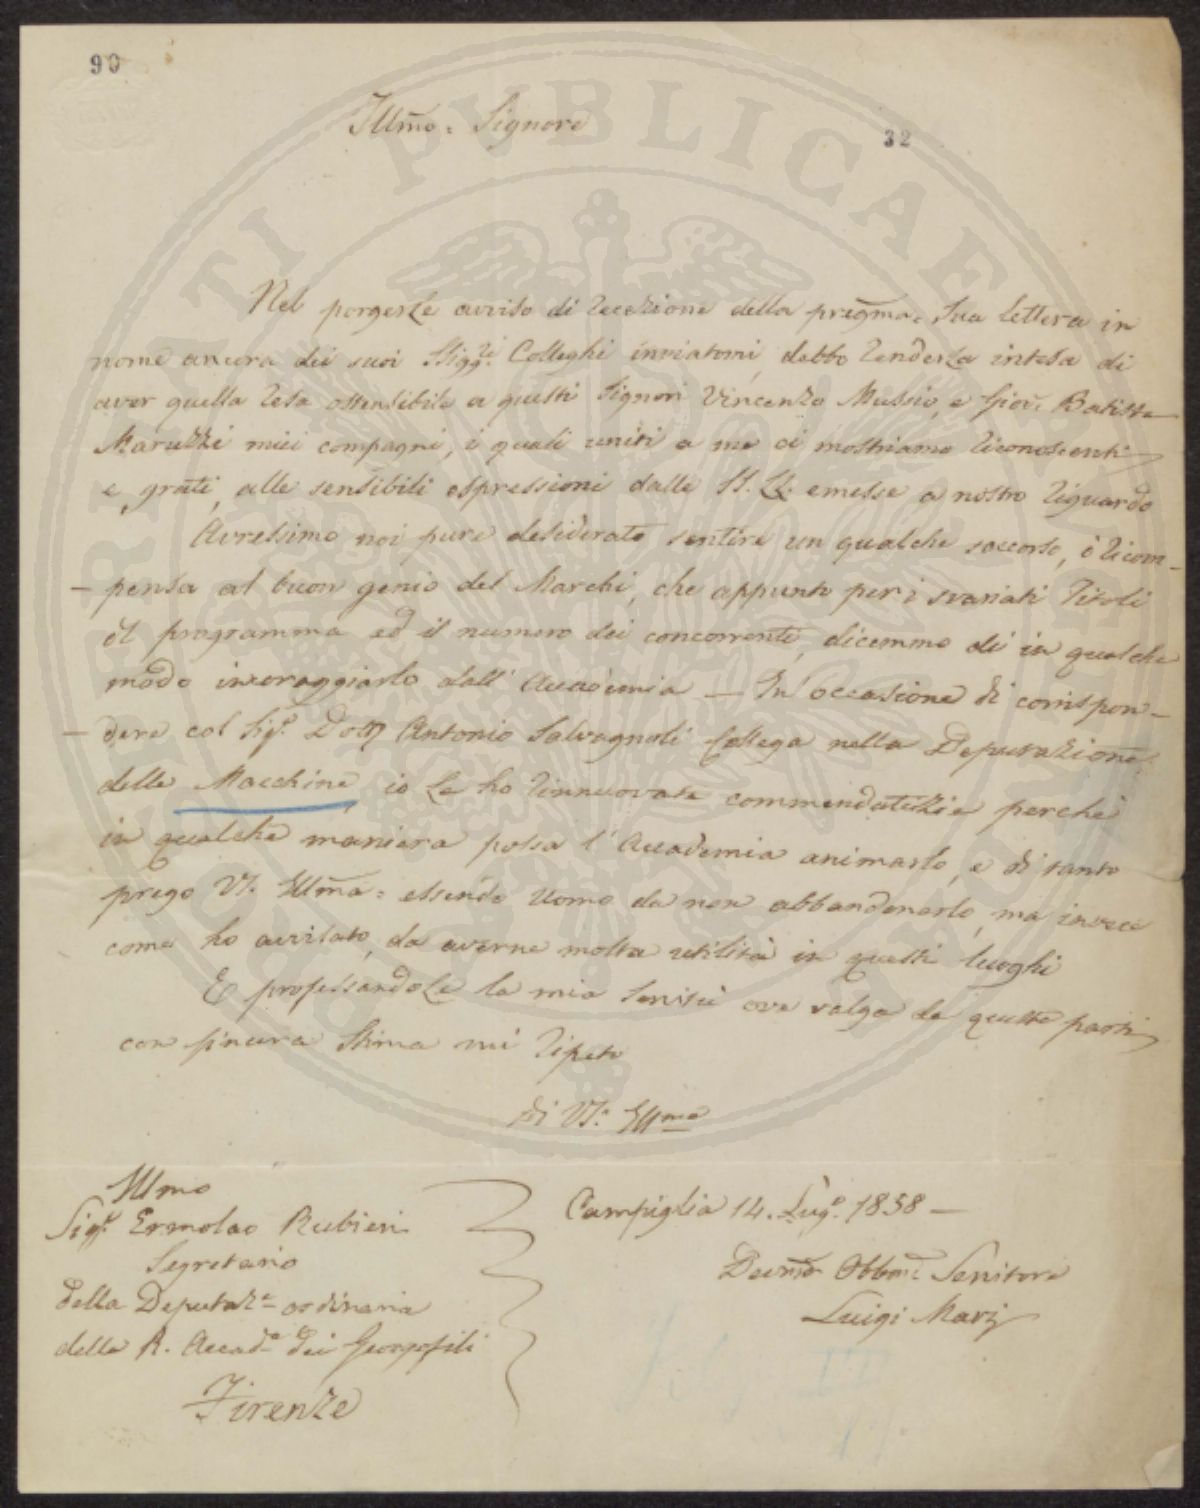 90
Illmo. Signore
32
Nel porgerle avviso di recezione della pregma. Sua lettera in
nome ancora dei suoi SSigg.ri Colleghi inviatomi, debbo renderla intesa di
aver quella resa ostensibile a questi Signori Vincenzo Mussio, e Giov. Batista
Maruzzi miei compagni, i quali uniti a me ci mostriamo riconoscenti
e grati, alle sensibili espressioni dalle SS. LL. emesse a nostro riguardo
Avressimo noi pure desiderato sentire un qualche soccorso, ò ricom-
-pensa al buon genio del Marchi, che appunto per i svariati Titoli
il programma ed il numero dei concorrenti, dicemmo di in qualche
modo incoraggiarlo dall'Accademia — In occasione di corrispon-
-dere col Sigr. Dott Antonio Salvagnoli Collega nella Deputazione
delle Macchine io le ho rinnuovate commendatizie perchè
in qualche maniera possa l'Accademia animarlo, e di tanto
prego VS. Illma: essendo Uomo da non abbandonarlo, ma invece
come ho avvisato, da averne molta utilità in questi luoghi
E professandole la mia servitù ove valga da queste parti
con sincera stima mi ripeto
Di VS. Illma
Illmo
Sigr. Ermolao Rubieri
Segretario
della Deputaze. ordinaria
della R. Accada. dei Georgofili
Firenze
Campiglia 14. Lugo. 1858 —
Devmo Obbmo Servitore
Luigi Marzi